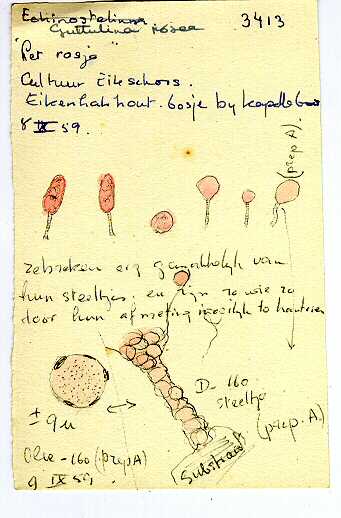 Echinostelium
Guttulina rosea
3413
"Per rosje"
Cultuur Eikeschors.
Eikenhakhout-bosje by Kapelle
8 IX 59.
(prep. A)
ze breken erg gemakkelyk van
hun steeltjes; en zijn zo wie zo
door hun afmeting moeilyk te hanteren
D-160
steeltje
(prep. A)
± 9 u
Olie-160 (prep A)
9 IX 59.
Substraat